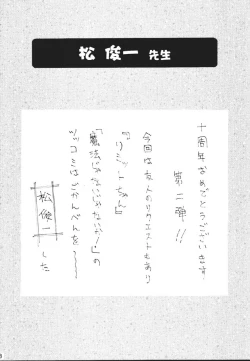 松 俊一 先生
十周年おめでとうございます
第二弾!!
今回は友人のリクエストもあり
「魔法じゃないじゃないか!」の
ツッコミはしかんべんを〜〜
松 俊一
でした